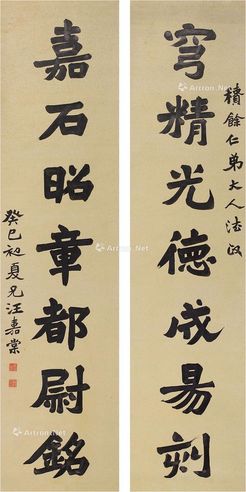 積餘仁弟大人法政
穹精光德成易刻
嘉石昭章都尉銘
癸巳初夏兄汪嘉棠
Artron.Net